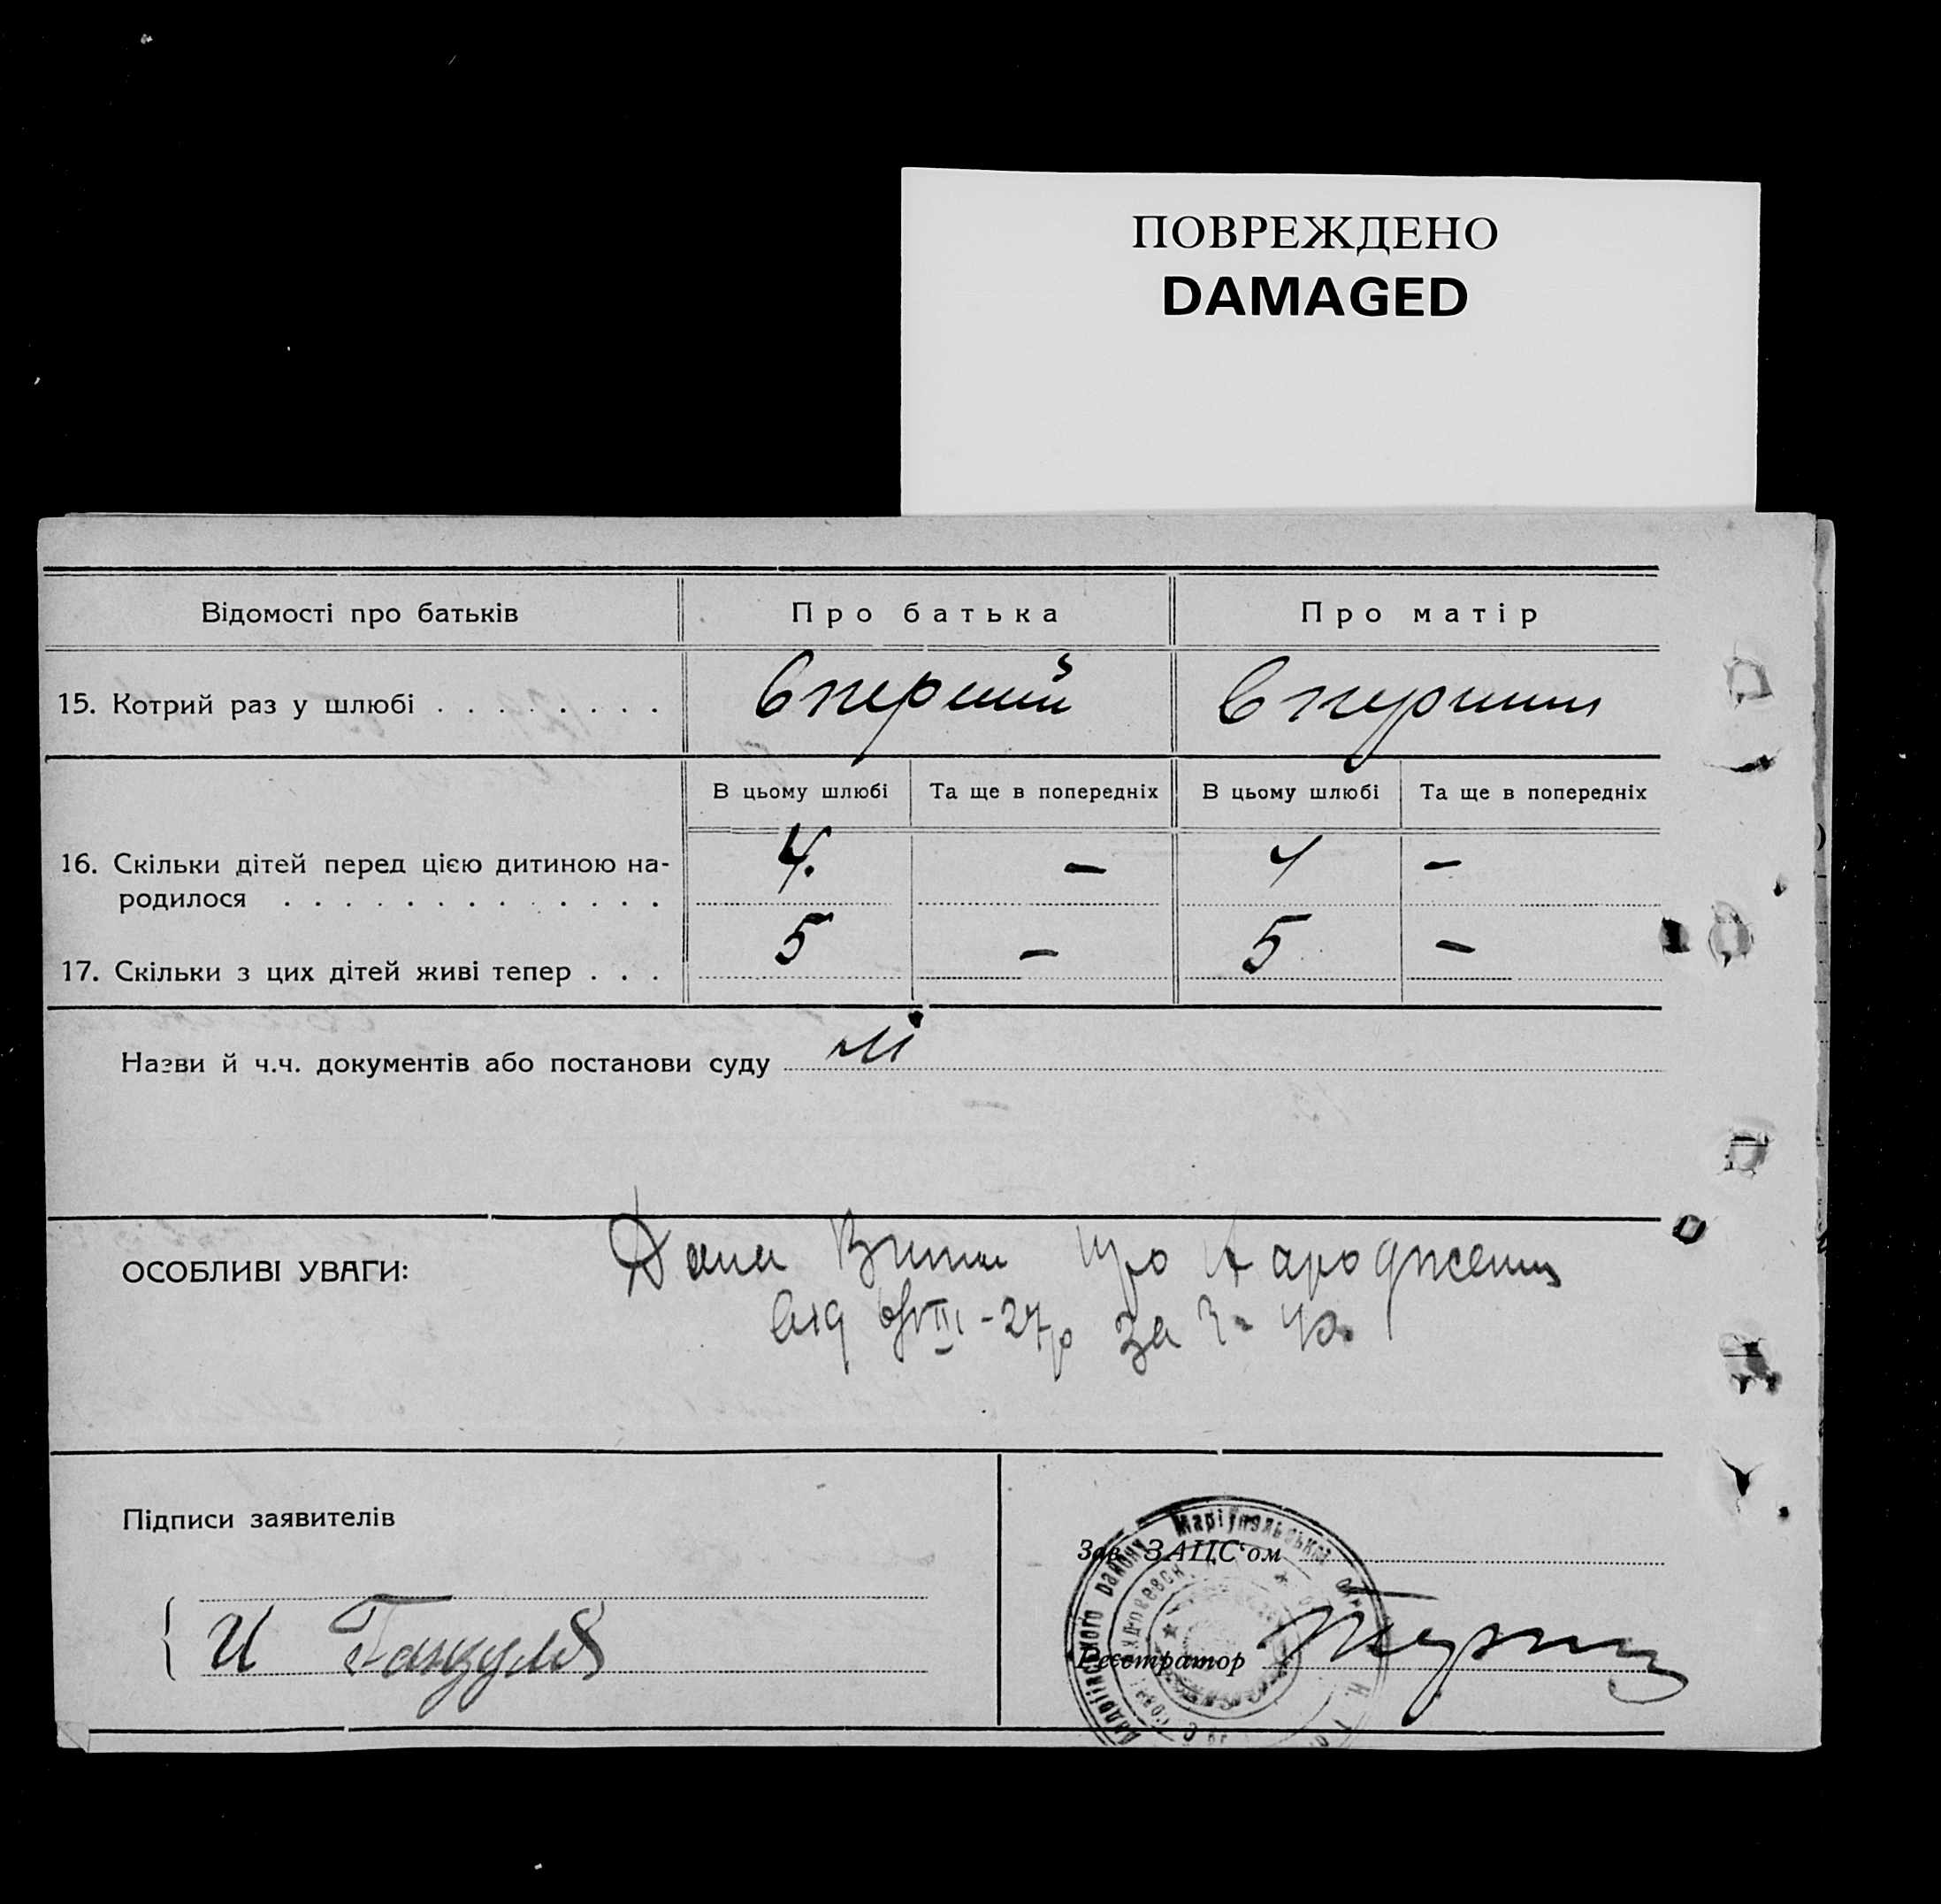 ПОВРЕЖДЕНО
DAMAGED
Відомості про батьків
Про батька
Про матір
15. Котрий раз у шлюбі . . . . . . . .
Вперший
Вперший
В цьому шлюбі
Та ще в попередніх
В цьому шлюбі
Та ще в попередніх
16. Скільки дітей перед цією дитиною на-
родилося . . . . . . . . . . . . .
4.
—
4
—
17. Скільки з цих дітей живі тепер . . .
5
—
5
—
Назви й ч.ч. документів або постанови суду
ні
ОСОБЛИВІ УВАГИ:
Дана Випис про Народження
від VIII-27р за №
Підписи заявителів
Зав. ЗАЦС'ом
И
Реєстратор
району Маріупольської